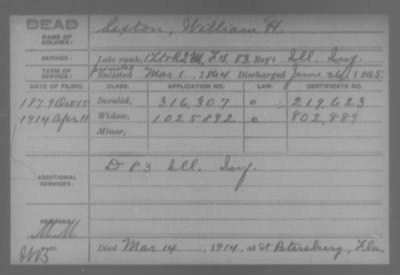 DEAD
NAME OF SOLDIER:
Sexton, William H.
SERVICE:
Late rank, F&S 83 Reg't Ill. Inf.
TERM OF SERVICE:
Enlisted Mar. 1, 1864 Discharged June 26, 1865
DATE OF FILING. CLASS. APPLICATION NO. LAW. CERTIFICATE NO.
1879 Oct 15 Invalid, 316,307 o 219,623
1914 Apr 11 Widow, 1025892 o 802,889
Minor,
ADDITIONAL SERVICES:
D 83 Ill. Inf.
REMARKS:
Died Mar. 14, 1914, at St Petersburg, Fla.